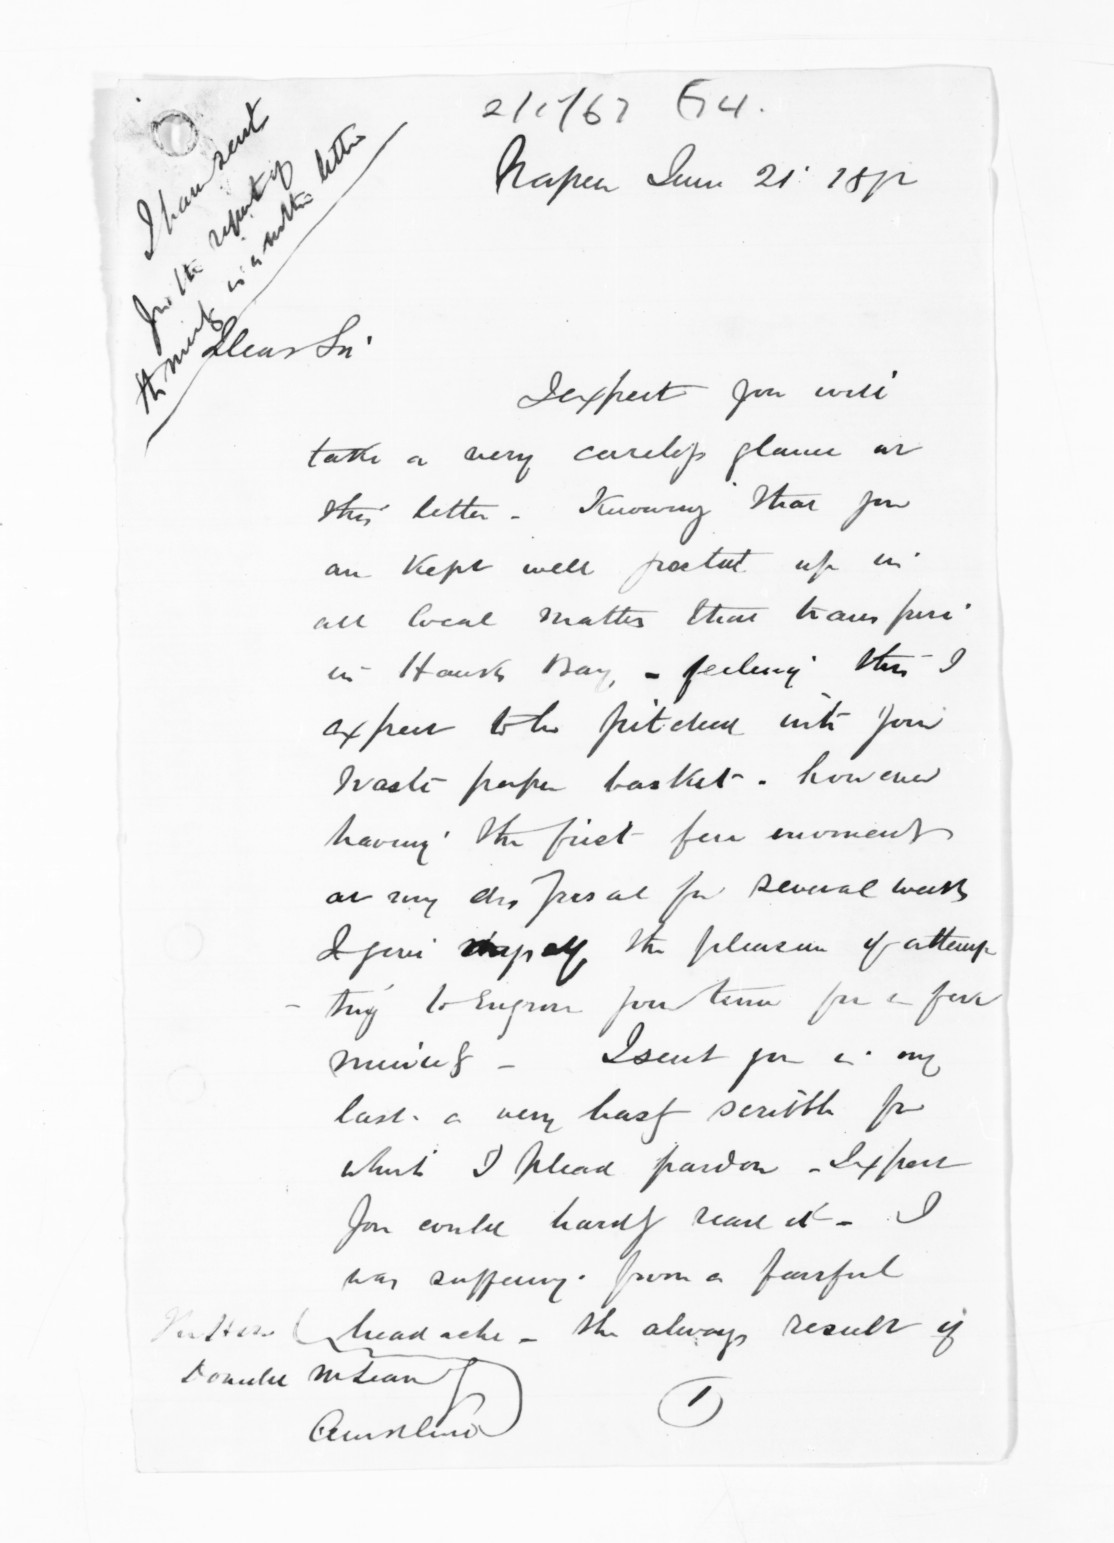 I have sent
you the report of
the meeting in another letter
Napier June 21st 187
Dear Sir
I expect you will
take a very careless glance at
this letter - Knowing that you
are kept well posted up in
all local matters that transpire
in Hawkes Bay, - feeling this I
expect to be pitched into your
waste paper basket - however
having the first few moments
at my disposal for several weeks
I give myself the pleasure of attemp
- ting to Engross your time for a few
minutes - I sent you in my
last a very hasty scribble for
which I plead pardon - I expect
you could hardly read it - I
was suffering from a fearful
headache - the always result of
The Hon
Donald McLean
Auckland
1